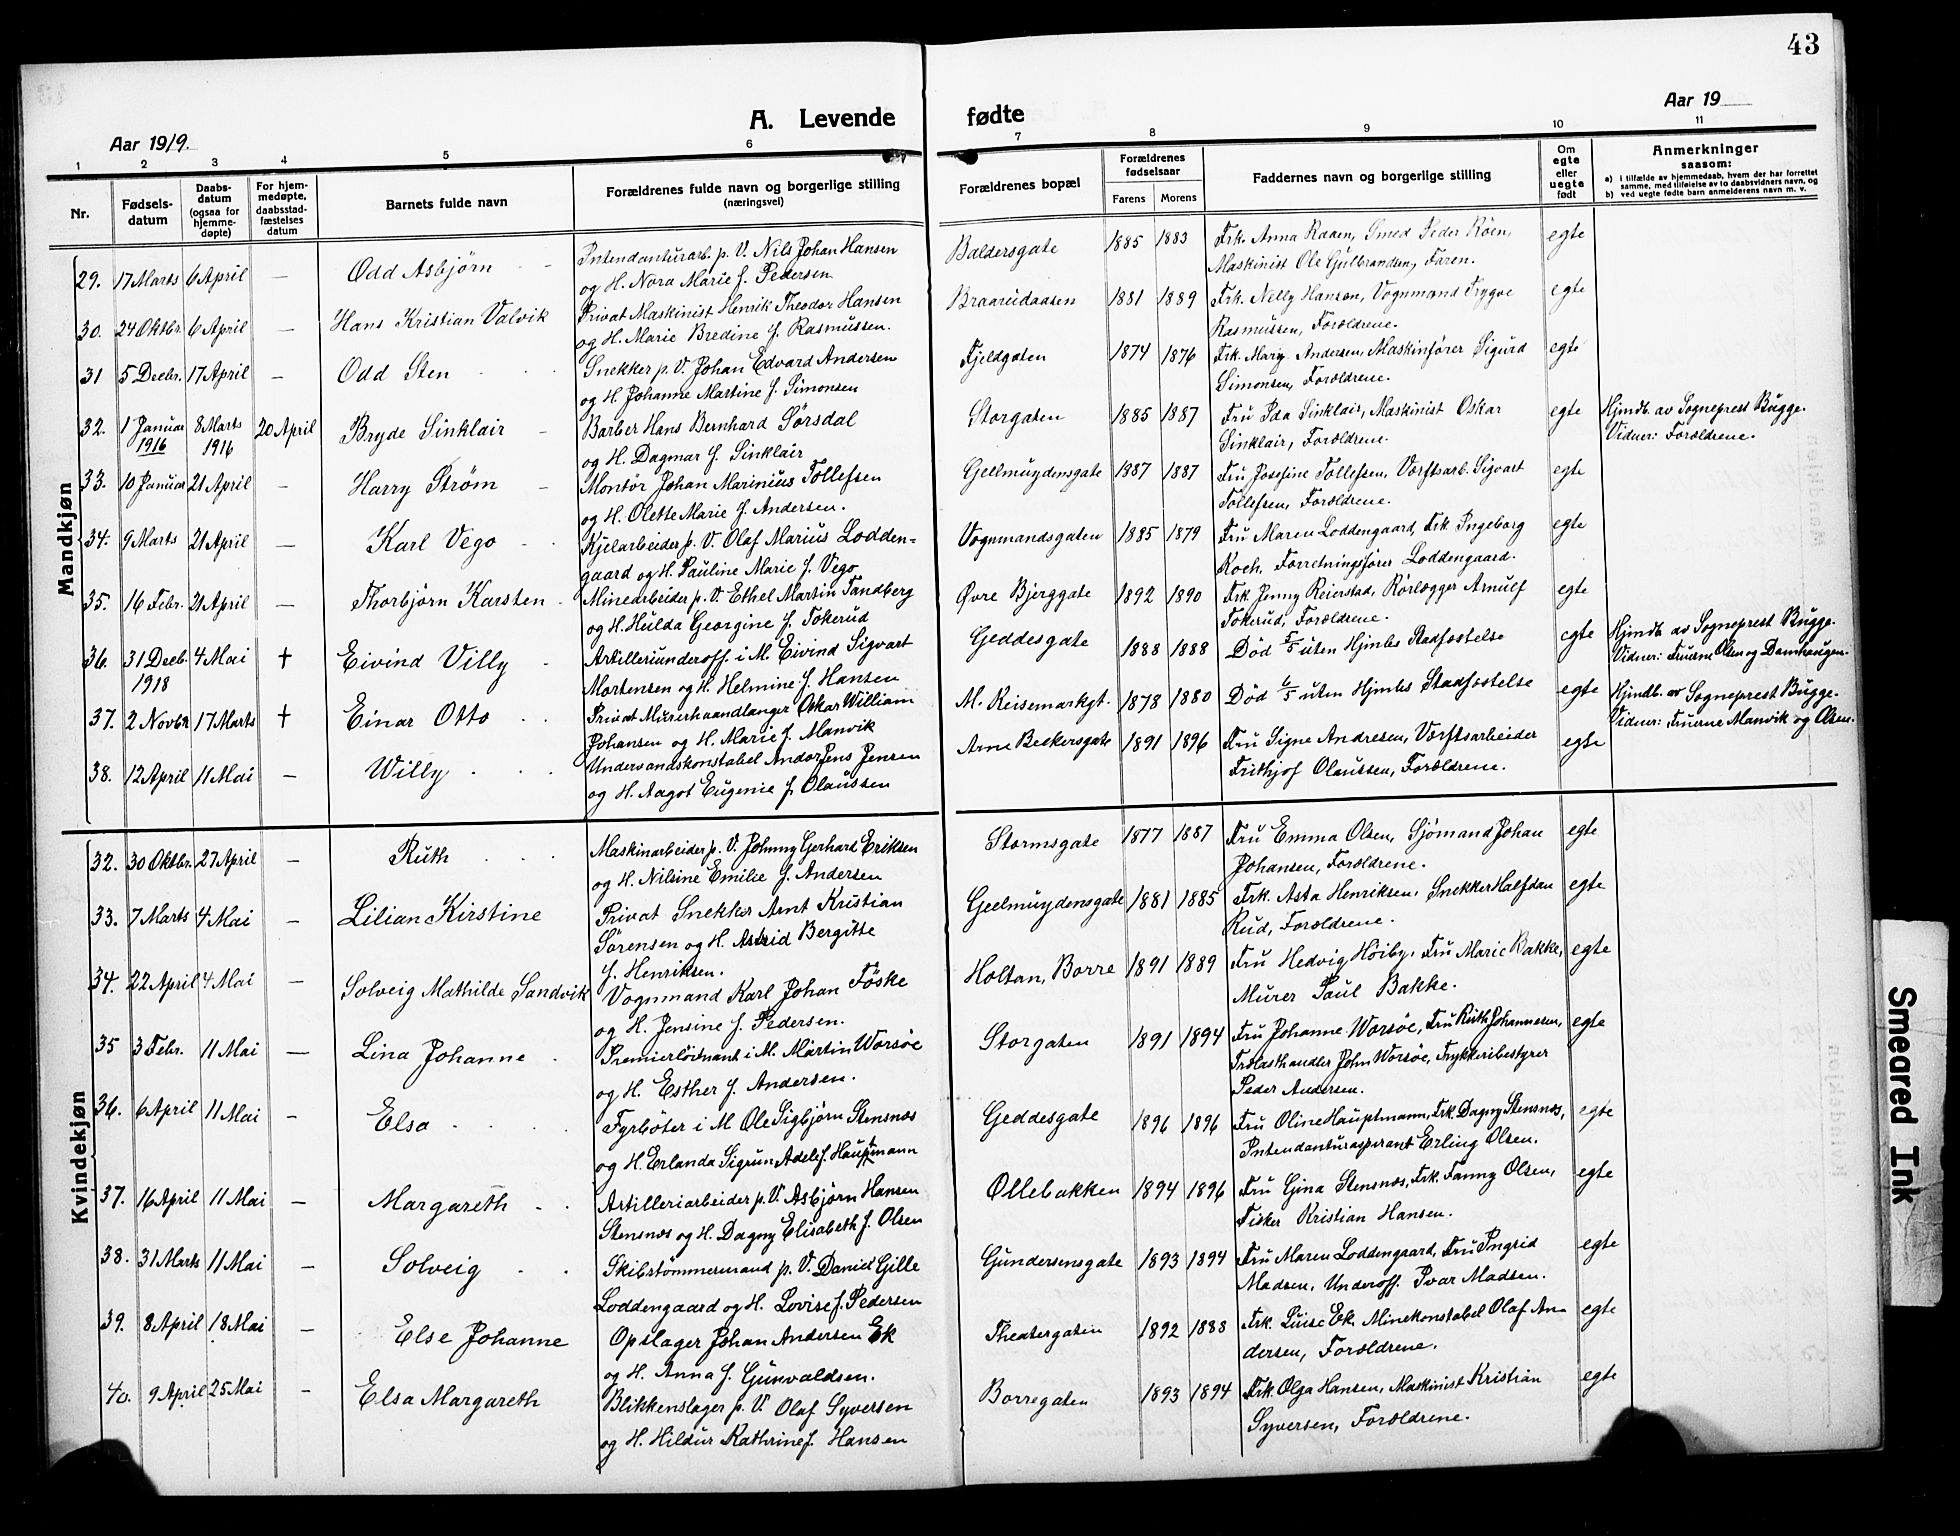 43
Aar 1919.
A. Levende fødte
Aar 19
1 2 3 4 5 6 7 8 9 10 11
Nr.
Fødsels-
datum
Daabs-
datum
(ogsaa for
hjemme-
døpte)
For hjem-
medøpte,
daabsstad-
fæstelses
datum
Barnets fulde navn
Forældrenes fulde navn og borgerlige stilling
(næringsvei)
Forældrenes bopæl
Forældrenes
fødselsaar
Farens Morens
Faddernes navn og borgerlige stilling
Om
egte
eller
uegte
født
Anmerkninger
saasom:
a) i tilfælde av hjemmedaab, hvem der har forrettet
samme, med tilføielse av to daabsvidners navn, og
b) ved uegte fødte barn anmelderens navn m. v.
Mandkjøn
29. 17 Marts 6 April — Odd Asbjørn
Intendanturarb. p. V. Nils Johan Hansen
og H. Nora Marie f. Pedersen
Baldersgate 1885 1883
Frk. Anna Raaen, Smed Peder Røen,
Maskinist Ole Gulbrandsen, Faren.
egte
30. 24 Oktbr. 6 April — Hans Kristian Valvik
Privat Maskinist Henrik Theodor Hansen
og H. Marie Bredine f. Rasmussen.
Braarudaasen 1881 1889
Frk. Nelly Hansen, Vognmand Trygve
Rasmussen, Forældrene.
egte
31 5 Decbr. 17 April — Odd Sten
Snekker p. V. Johan Edvard Andersen
og H. Johanne Martine f. Simonsen
Fjeldgaten 1874 1876
Frk. Mary Andersen, Maskinfører Sigurd
Simonsen, Forældrene.
egte
32. 1 Januar 8 Marts 20 April Bryde Sinklair
1916 1916
Barber Hans Bernhard Sørsdal
og H. Dagmar f. Sinklair
Storgaten 1885 1887
Fru Ida Sinklair, Maskinist Oskar
Sinklair, Forældrene.
egte
Hjmdb. av Sogneprest Bugge.
Vidner: Forældrene.
33. 10 Januar 21 April — Harry Strøm
Montør Johan Marinius Tollefsen
og H. Olette Marie f. Andersen.
Geelmuydensgate 1887 1887
Fru Josefine Tollefsen, Værftsarb. Sigvart
Tollefsen, Forældrene.
egte
34. 9 Marts 21 April — Karl Vego
Kjelarbeider p. V. Olaf Marius Lodden-
gaard og H. Pauline Marie f. Vego
Vognmandsgaten 1885 1879
Fru Maren Loddengaard, Frk. Ingeborg
Koch, Forretningsfører Loddengaard.
egte
35. 16 Febr. 21 April — Thorbjørn Karsten
Minearbeider p. V. Ethel Martin Tandberg
og H. Hulda Georgine f. Tokerud
Øvre Bjerggate 1892 1890
Frk. Jenny Reierstad, Rørlægger Arnulf
Tokerud, Forældrene.
egte
36. 31 Decb. 4 Mai † Eivind Villy
1918
Artilleriunderoff. i M. Eivind Sigvart
Mortensen og H. Helmine f. Hansen
Geddesgate 1888 1888
Død 5/5 uten Hjmbs Stadfæstelse
egte
Hjmdb. av Sogneprest Bugge.
Vidner: Fruerne Olsen og Damhaugen.
37. 2 Novbr. 17 Marts † Einar Otto
Privat Murerhaandlanger Oskar William
Johansen og H. Marie f. Manvik
M. Reisemarkgt. 1878 1880
Død 6/5 uten Hjmbs Stadfæstelse
egte
Hjmdb. av Sogneprest Bugge.
Vidner: Fruerne Manvik og Olsen.
38. 12 April 11 Mai — Willy
Undervandskonstabel Andor Jens Jensen
og H. Aagot Eugenie f. Olaussen
Arne Beckersgate 1891 1896
Fru Signe Andresen, Værftsarbeider
Frithjof Olaussen, Forældrene.
egte
Kvindekjøn
32. 30 Oktbr. 27 April — Ruth
Maskinarbeider p. V. Johnny Gerhard Eriksen
og H. Nilsine Emilie f. Andersen
Stormsgate 1877 1887
Fru Emma Olsen, Sjømand Johan
Johansen, Forældrene.
egte
33. 7 Marts 4 Mai — Lilian Kirstine
Privat Snekker Arnt Kristian
Sørensen og H. Astrid Bergitte
f. Henriksen.
Geelmuydensgate 1881 1885
Frk. Asta Henriksen, Snekker Halfdan
Rud, Forældrene.
egte
34. 22 April 4 Mai — Solveig Mathilde Sandvik
Vognmand Karl Johan Føske
og H. Jensine f. Pedersen.
Holtan, Borre 1891 1889
Fru Hedvig Høiby, Fru Marie Bakke,
Murer Paul Bakke.
egte
35 3 Febr. 11 Mai — Lina Johanne
Premierløitnant i M. Martin Worsöe
og H. Esther f. Andersen.
Storgaten 1891 1894
Fru Johanne Worsöe, Fru Ruth Johannesen,
Trælasthandler John Worsöe, Trykkeribestyrer
Peder Andersen.
egte
36. 6 April 11 Mai — Elsa
Fyrbøter i M Ole Sigbjørn Stensnæs
og H. Erlanda Sigrun Adele f. Hauptmann
Geddesgate 1896 1896
Fru Oline Hauptmann, Frk. Dagny Stensnæs,
Intendanturaspirant Erling Olsen.
egte
37. 16 April 11 Mai — Margareth
Artilleriarbeider p. V. Asbjørn Hansen
Stensnæs og H. Dagny Elisabeth f. Olsen
Ollebakken 1894 1896
Fru Gina Stensnæs, Frk. Fanny Olsen,
Fisker Kristian Hansen.
egte
38. 31 Marts 11 Mai — Solveig
Skibstømmermand p. V. Daniel Gille
Loddengaard og H. Lovise f. Pedersen
Gundersensgate 1893 1894
Fru Maren Loddengaard, Fru Ingrid
Madsen, Underoff. Ivar Madsen.
egte
39. 8 April 18 Mai — Else Johanne
Opslager Johan Andersen Ek
og H. Anna f. Gunvaldsen.
Theatergaten 1892 1888
Frk. Luise Ek, Minekonstabel Olaf An-
dersen, Forældrene.
egte
40. 9 April 25 Mai — Elsa Margareth
Blikkenslager p. V. Olaf Syversen
og H. Hildur Kathrine f. Hansen
Borregaten 1893 1894
Frk. Olga Hansen, Maskinist Kristian
Syversen, Forældrene.
egte
Smeared Ink